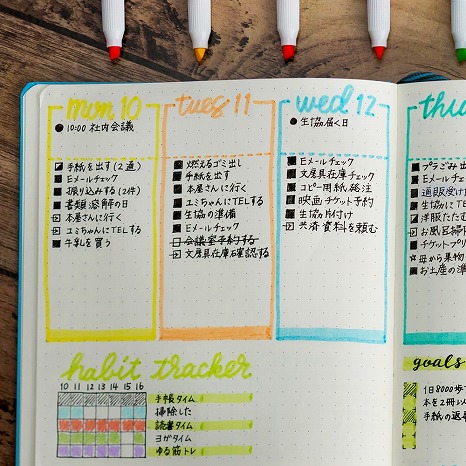 mon 10
● 10:00 社内会議
手紙を出す(2通)
Eメールチェック
振り込みする(2件)
書類溶解の日
本屋さんに行く
ユミちゃんにTELする
牛乳を買う
tues 11
燃えるゴミ出し
手紙を出す
本屋さんに行く
ユミちゃんにTELする
生協の準備
Eメールチェック
会議室予約する
文房具在庫確認する
wed 12
● 生協届く日
Eメールチェック
文房具在庫チェック
コピー用紙発注
映画チケット予約
生協片付け
共済資料を頼む
thu
プラごみ出
Eメールチェ
通販受け
生協にTE
洋服たたむ
お風呂掃
チケットプリ
母から果物
お土産の準
habit tracker
10 11 12 13 14 15 16
手帳タイム
掃除した
読書タイム
ヨガタイム
ゆる筋トレ
goals
1日8000歩
本を2冊
手帳の返